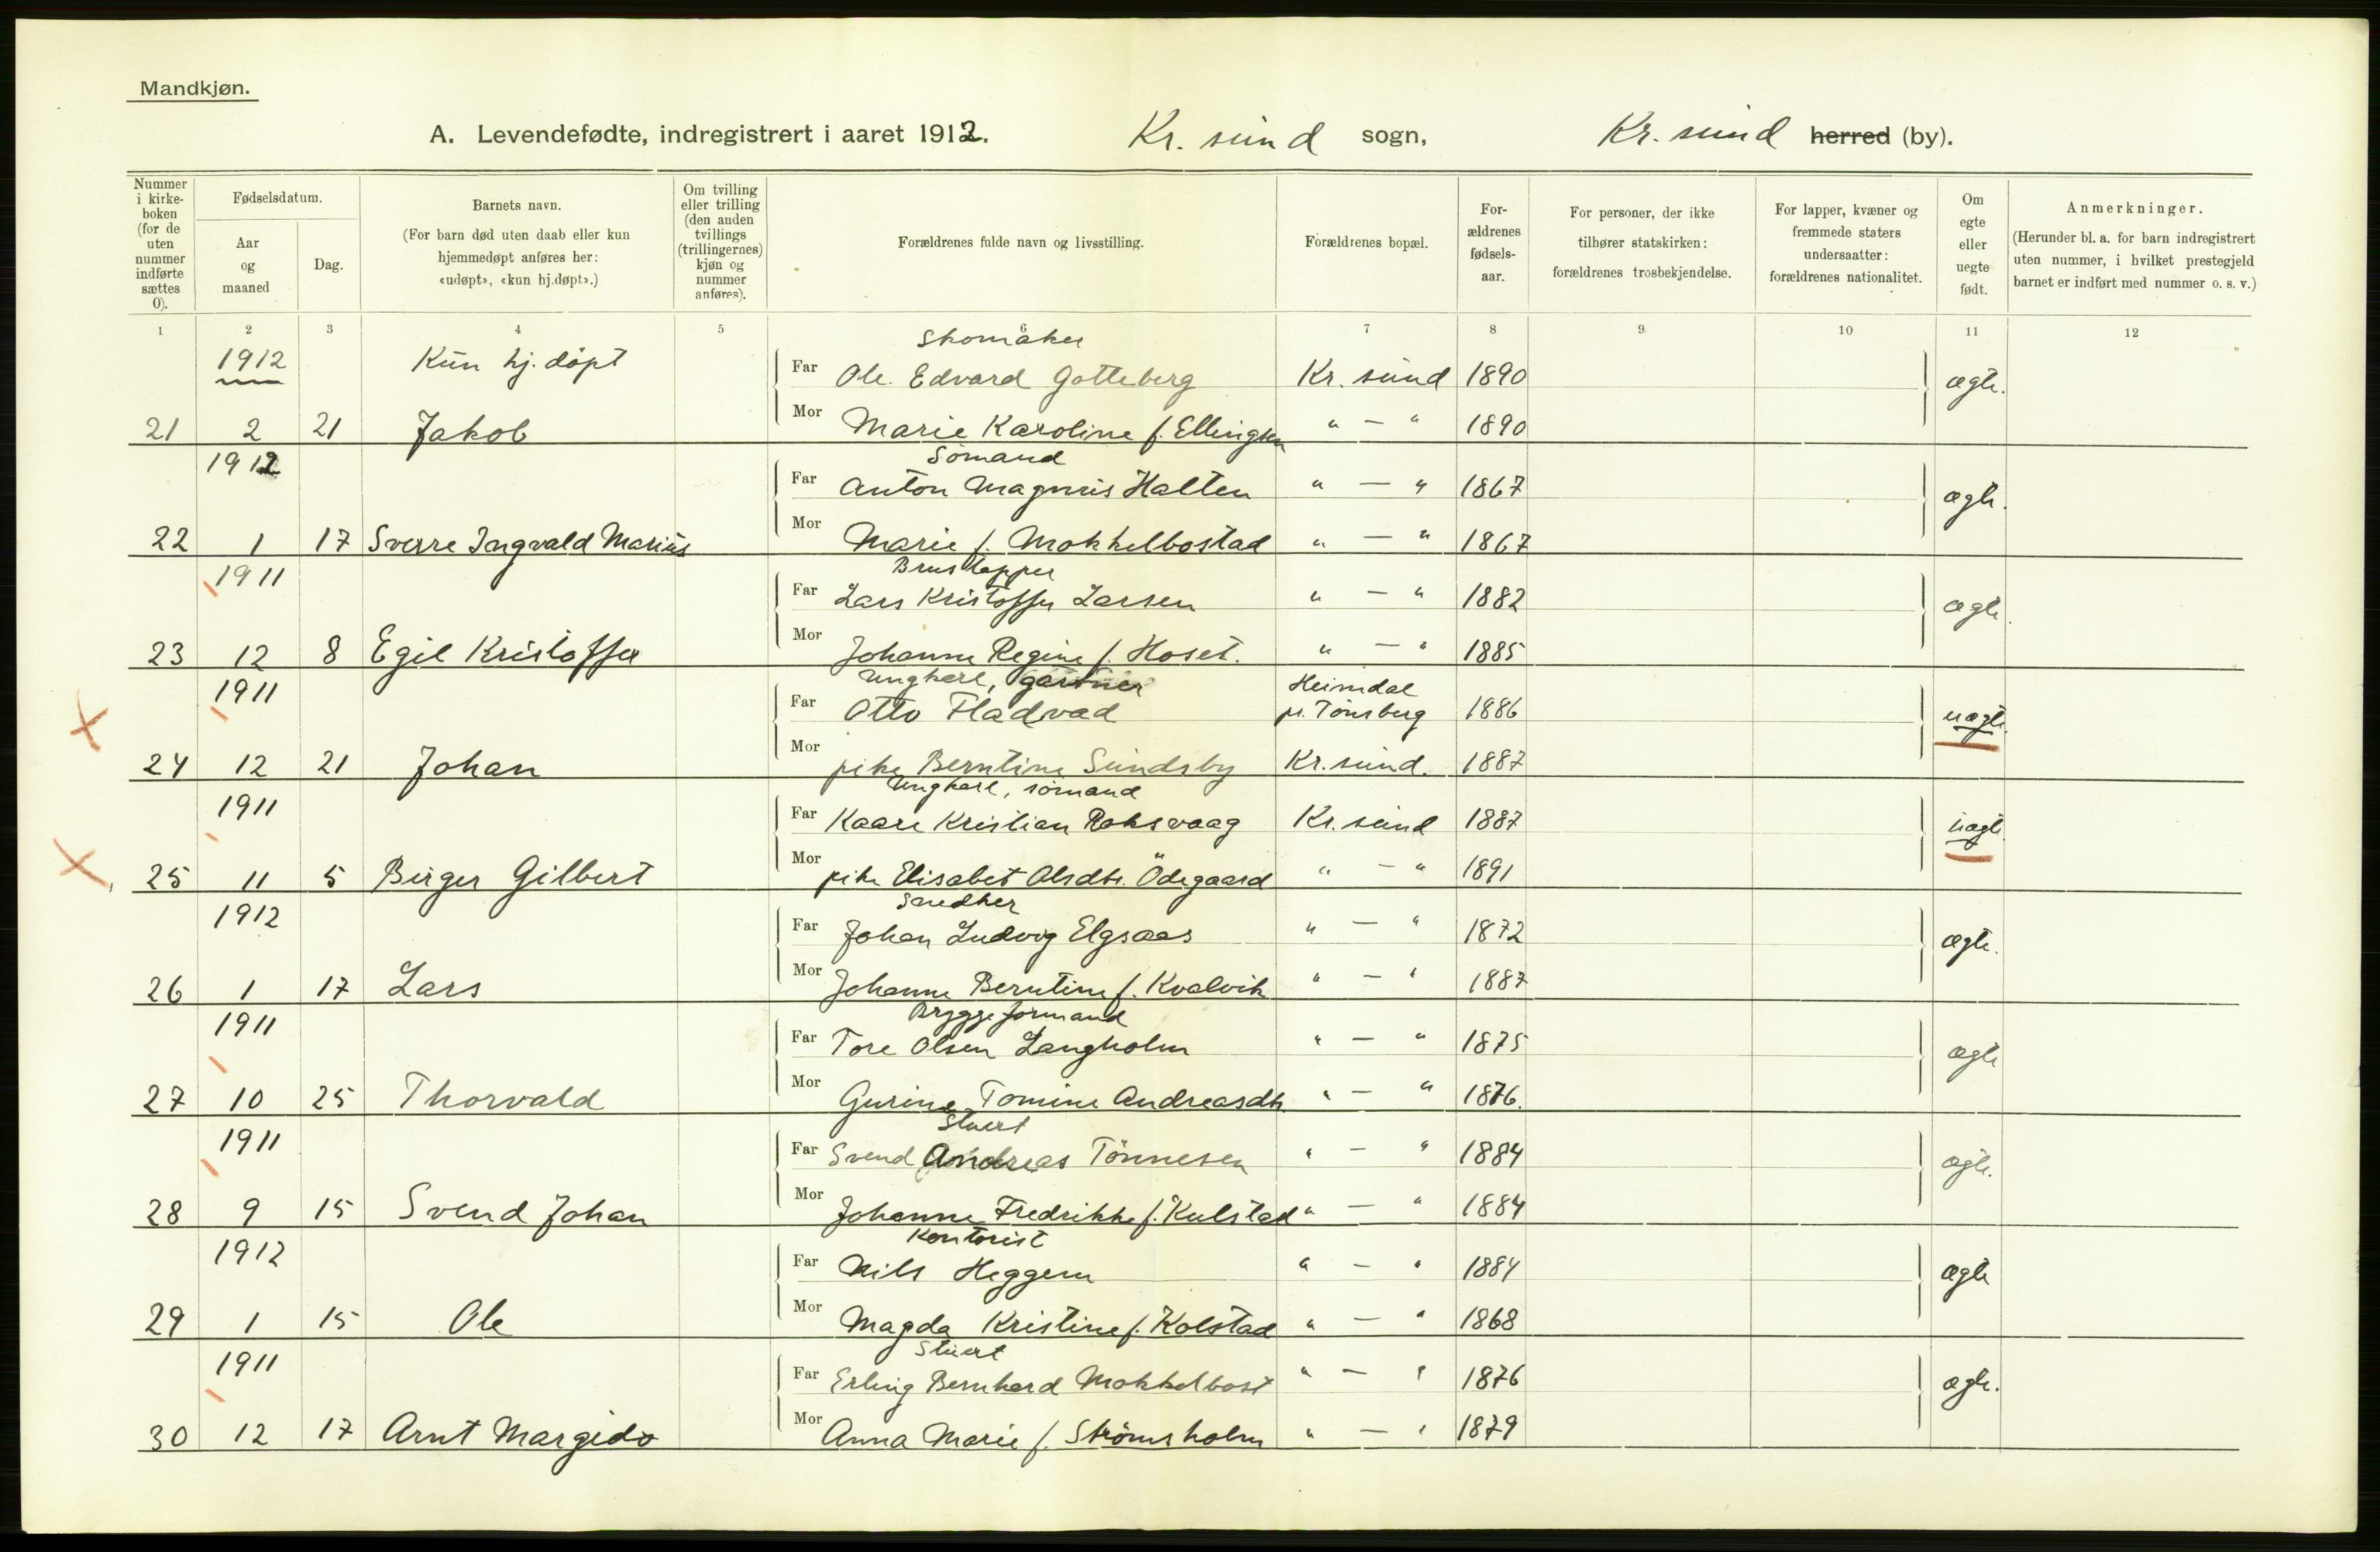 Mandkjøn.
A. Levendefødte, indregistrert i aaret 1912. Kr. sund sogn, Kr. sund herred (by).
Nummer i kirke-boken (for de uten nummer indførte sættes 0).
Fødselsdatum.
Aar og maaned
Dag.
Barnets navn.
(For barn død uten daab eller kun hjemmedøpt anføres her: «udøpt», «kun hj.døpt».)
Om tvilling eller trilling (den anden tvillings (trillingernes) kjøn og nummer anføres).
Forældrenes fulde navn og livsstilling.
Forældrenes bopæl.
For-ældrenes fødsels-aar.
For personer, der ikke tilhører statskirken: forældrenes trosbekjendelse.
For lapper, kvæner og fremmede staters undersaatter: forældrenes nationalitet.
Om egte eller uegte født.
Anmerkninger.
(Herunder bl. a. for barn indregistrert uten nummer, i hvilket prestegjeld barnet er indført med nummer o. s. v.)
1 2 3 4 5 6 7 8 9 10 11 12
Skomaker
1912 Kun hj. döpt Far Ole Edvard Gotteberg Kr. sund 1890 ægte.
21 2 21 Jakob Mor Marie Karoline f. Ellingsen " — " 1890
Sömand
1912 Far Anton Magnus Halten " — " 1867 ægte.
22 1 17 Sverre Ingvald Marius Mor Marie f. Mokkelbostad " — " 1867
Brustapper
1911 Far Lars Kristoffer Larsen " — " 1882 ægte.
23 12 8 Egil Kristoffer Mor Johanne Regine f. Hoset. " — " 1885
Ungkarl, gartner
1911 Far Otto Fladvad Heimdal pr. Tönsberg 1886 uægte.
24 12 21 Johan Mor pike Berntine Sundsby Kr. sund. 1887
Ungkarl, sömand
1911 Far Kaare Kristian Roksvaag Kr. sund 1887 uægte
25 11 5 Birger Gilbert Mor pike Elisabet Olsdtr. Ödegaard " — " 1891
Snedker
1912 Far Johan Ludvig Elgsaas " — " 1872 ægte.
26 1 17 Lars Mor Johanne Berntine f. Kvalvik " — " 1887
Bryggeformand
1911 Far Tore Olsen Langholm " — " 1875 ægte
27 10 25 Thorvald Mor Gurine Tomine Andreasdtr " — " 1876.
Stuert
1911 Far Svend Andreas Tönnesen " — " 1884 ægte.
28 9 15 Svend Johan Mor Johanne Fredrikke f. Kulstad " — " 1884
Kontorist
1912 Far Nils Heggem " — " 1884 ægte
29 1 15 Ole Mor Magda Kristine f. Kolstad " — " 1868
Stuert
1911 Far Erling Bernhard Mokkelbost " — " 1876 ægte.
30 12 17 Arnt Margido Mor Anna Marie f. Strömsholm " — " 1879